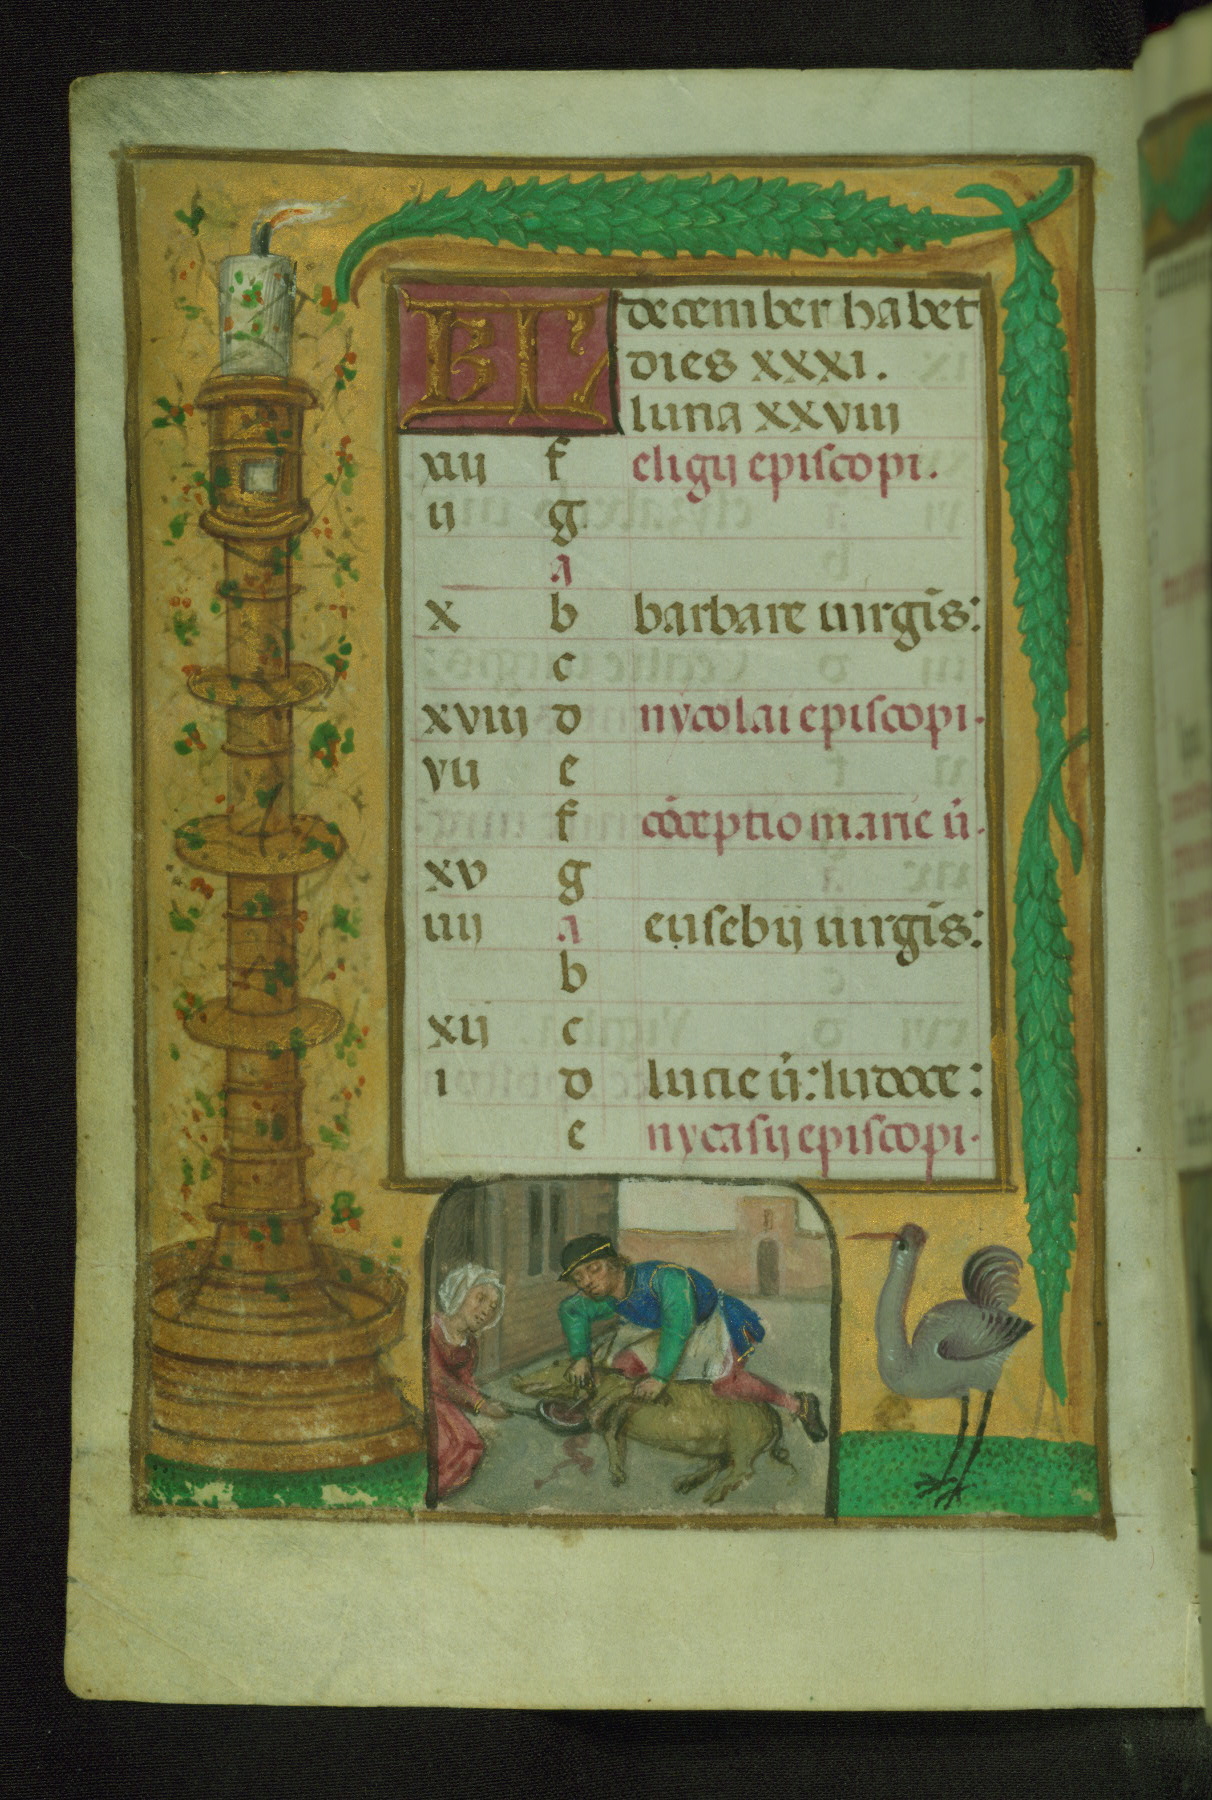 KL december habet
dies xxxi.
luna xxviii
xiij f eligij episcopi.
ij g
a
x b barbare uirgĩs:
c
xviij d nycolai episcopi.
vij e
f cõceptio marie ũ.
xv g
iiij a eusebij uirgĩs:
b
xij c
i d lucie ũ: iudoce:
e nycasij episcopi.